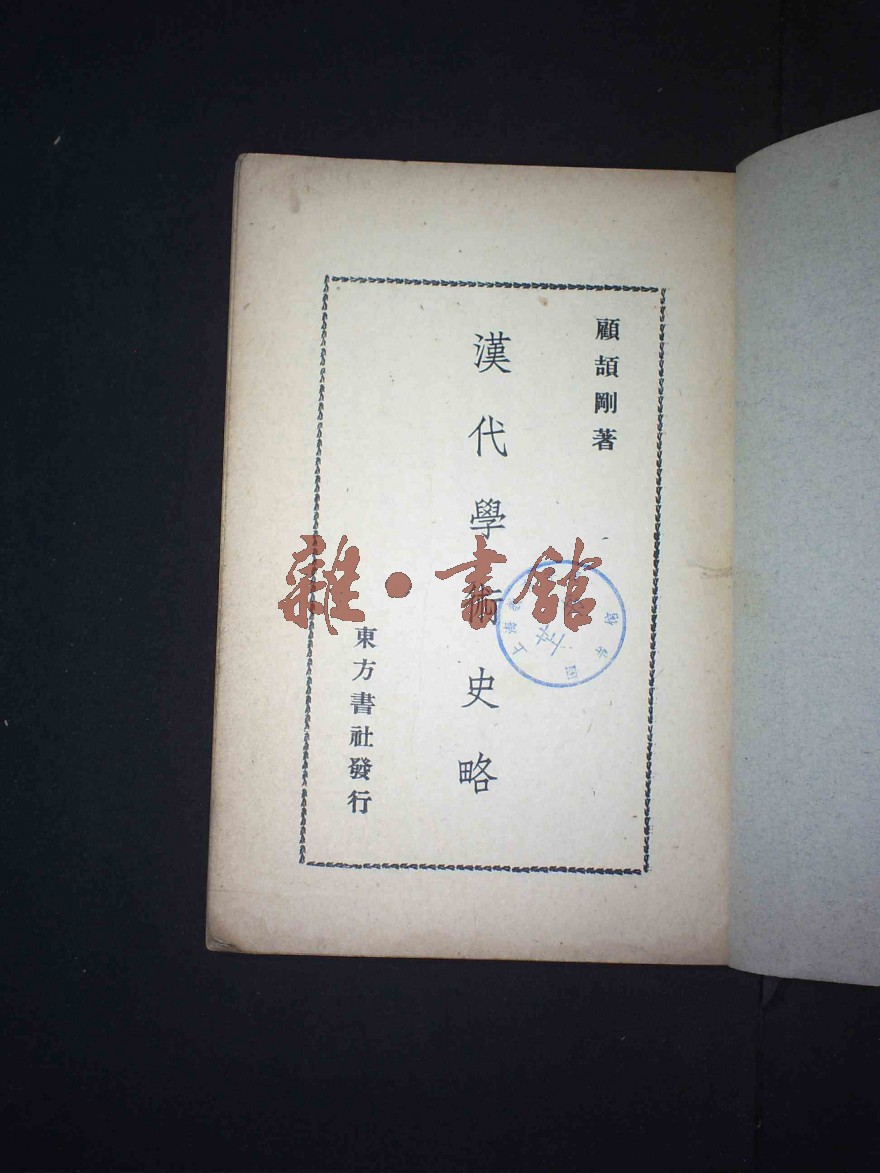 顧頡剛著
漢代學術史略
東方書社發行
雜·書館
上海